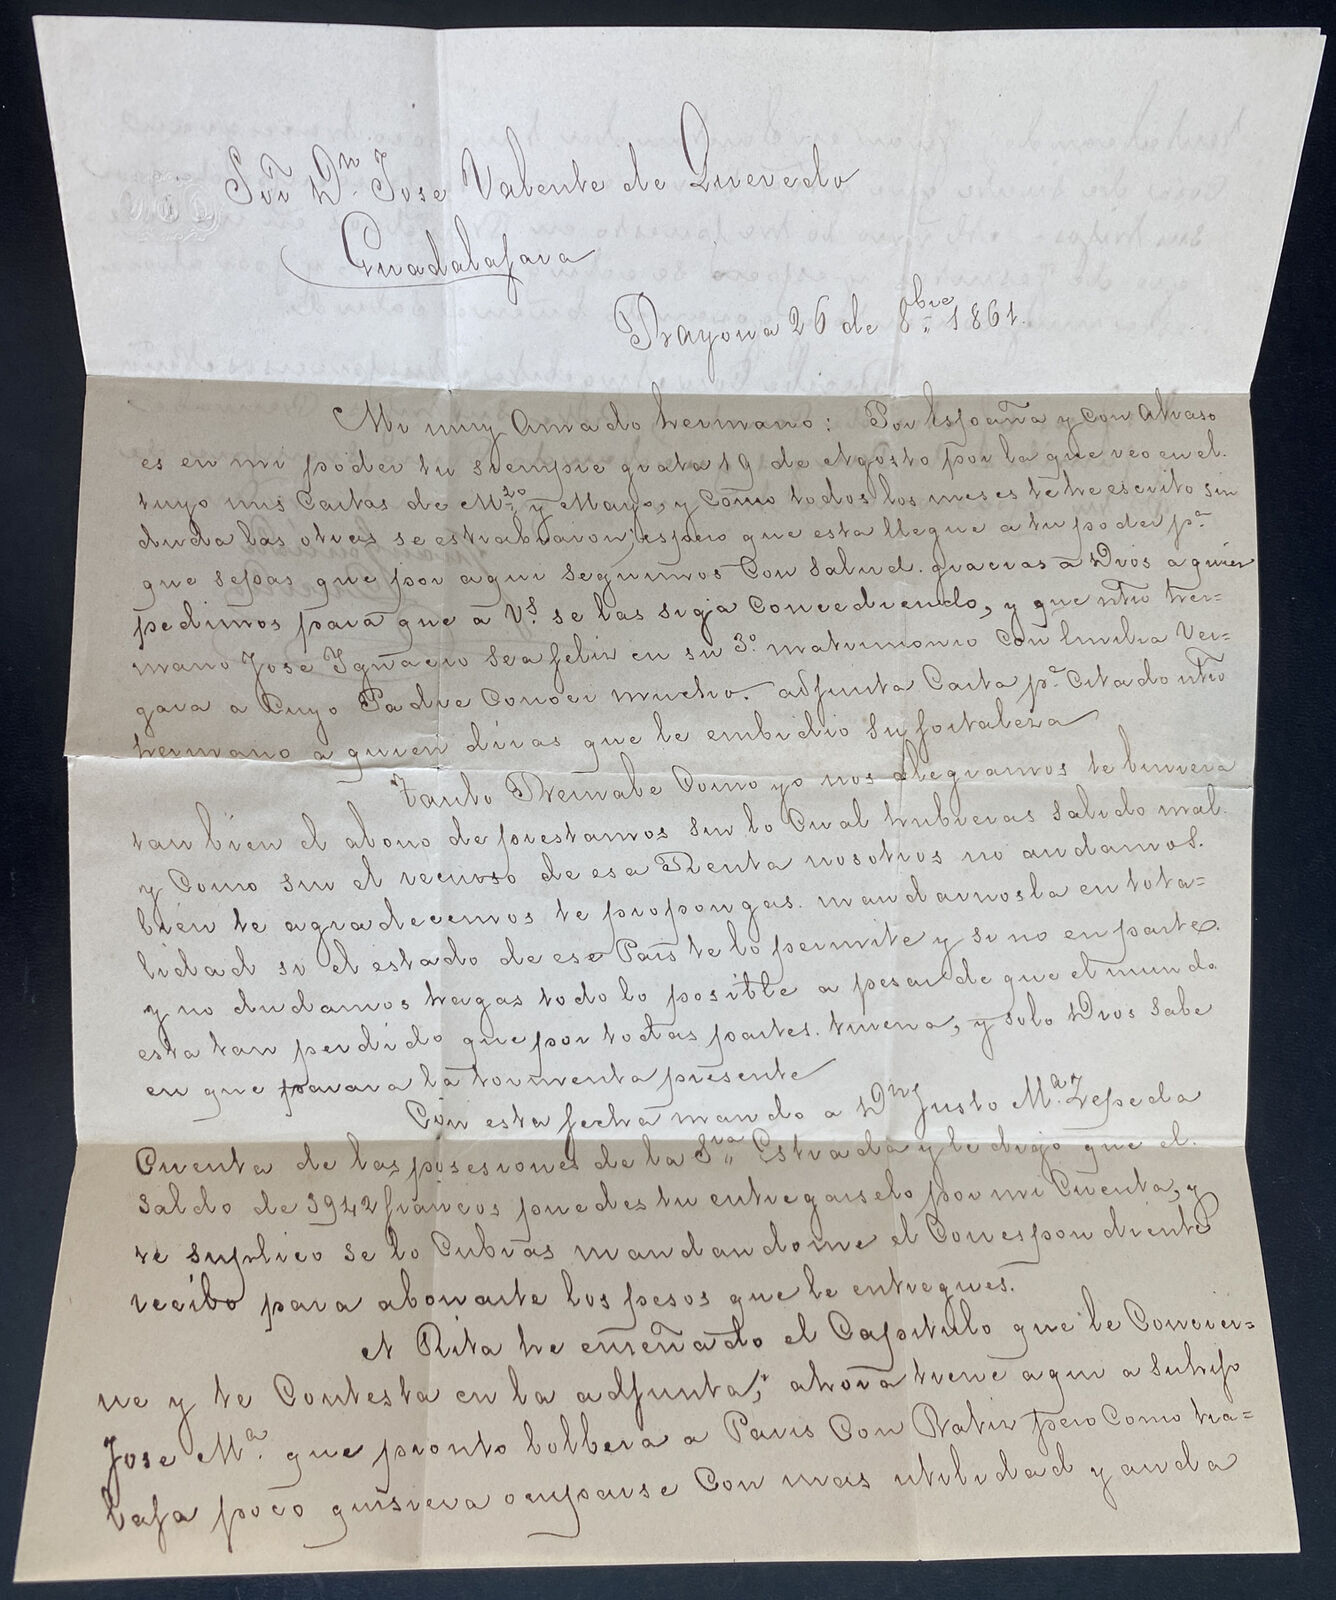 Sõr Dn. Jose Valente de Quevedo
Guadalajara
Bayona 26 de 8bre. 1861.
Mi muy Amado hermano: Por España y con atraso
es en mi poder tu siempre grata 19 de Agosto por la que veo en el
tuyo mis Cartas de Mzo. y Mayo, y como todos los meses te he escrito sin
duda las otras se estrabiaron; espero que esta llegue a tu poder pa.
que sepas que por aqui seguimos con salud. gracias à Dios a quien
pedimos para que à Vs. se las siga concediendo, y que ntro her=
mano Jose Ignacio sea feliz en su 3o. matrimonio con Emilia Ver=
gara a cuyo Padre conoci mucho. adjunta Carta pa. citado ntro
hermano a quien diras que le embidio su fortaleza
Tanto Bernabe Como yo nos alegramos te biniera
tan bien el abono de prestamos sin lo Cual hubieras salido mal.
y Como sin el recurso de esa Renta nosotros no andamos.
bien te agradecemos te propongas. mandarnosla en tota=
lidad si el estado de ese Pais te lo permite y si no en parte.
y no dudamos hagas todo lo posible a pesar de que el mundo
esta tan perdido que por todas partes. truena, y solo Dios sabe
en que parara la tormenta presente
Con esta fecha mando a Dn Justo Ma. Zepeda
Cuenta de las posesiones de la Sra Estrada y le digo que el.
saldo de 3942 francos puedes tu entregarselo por mi Cuenta, y
te suplico se lo Cubras mandandome el Correspondiente
recibo para abonarte los pesos que le entregues.
A Rita he enseñado el Capitulo que le Concier=
ne y te Contesta en la adjunta, ahora tiene aqui a su hijo
Jose Ma. que pronto bolbera a Paris Con pero Como tra=
baja poco quisiera ocuparse Con mas utilidad y anda